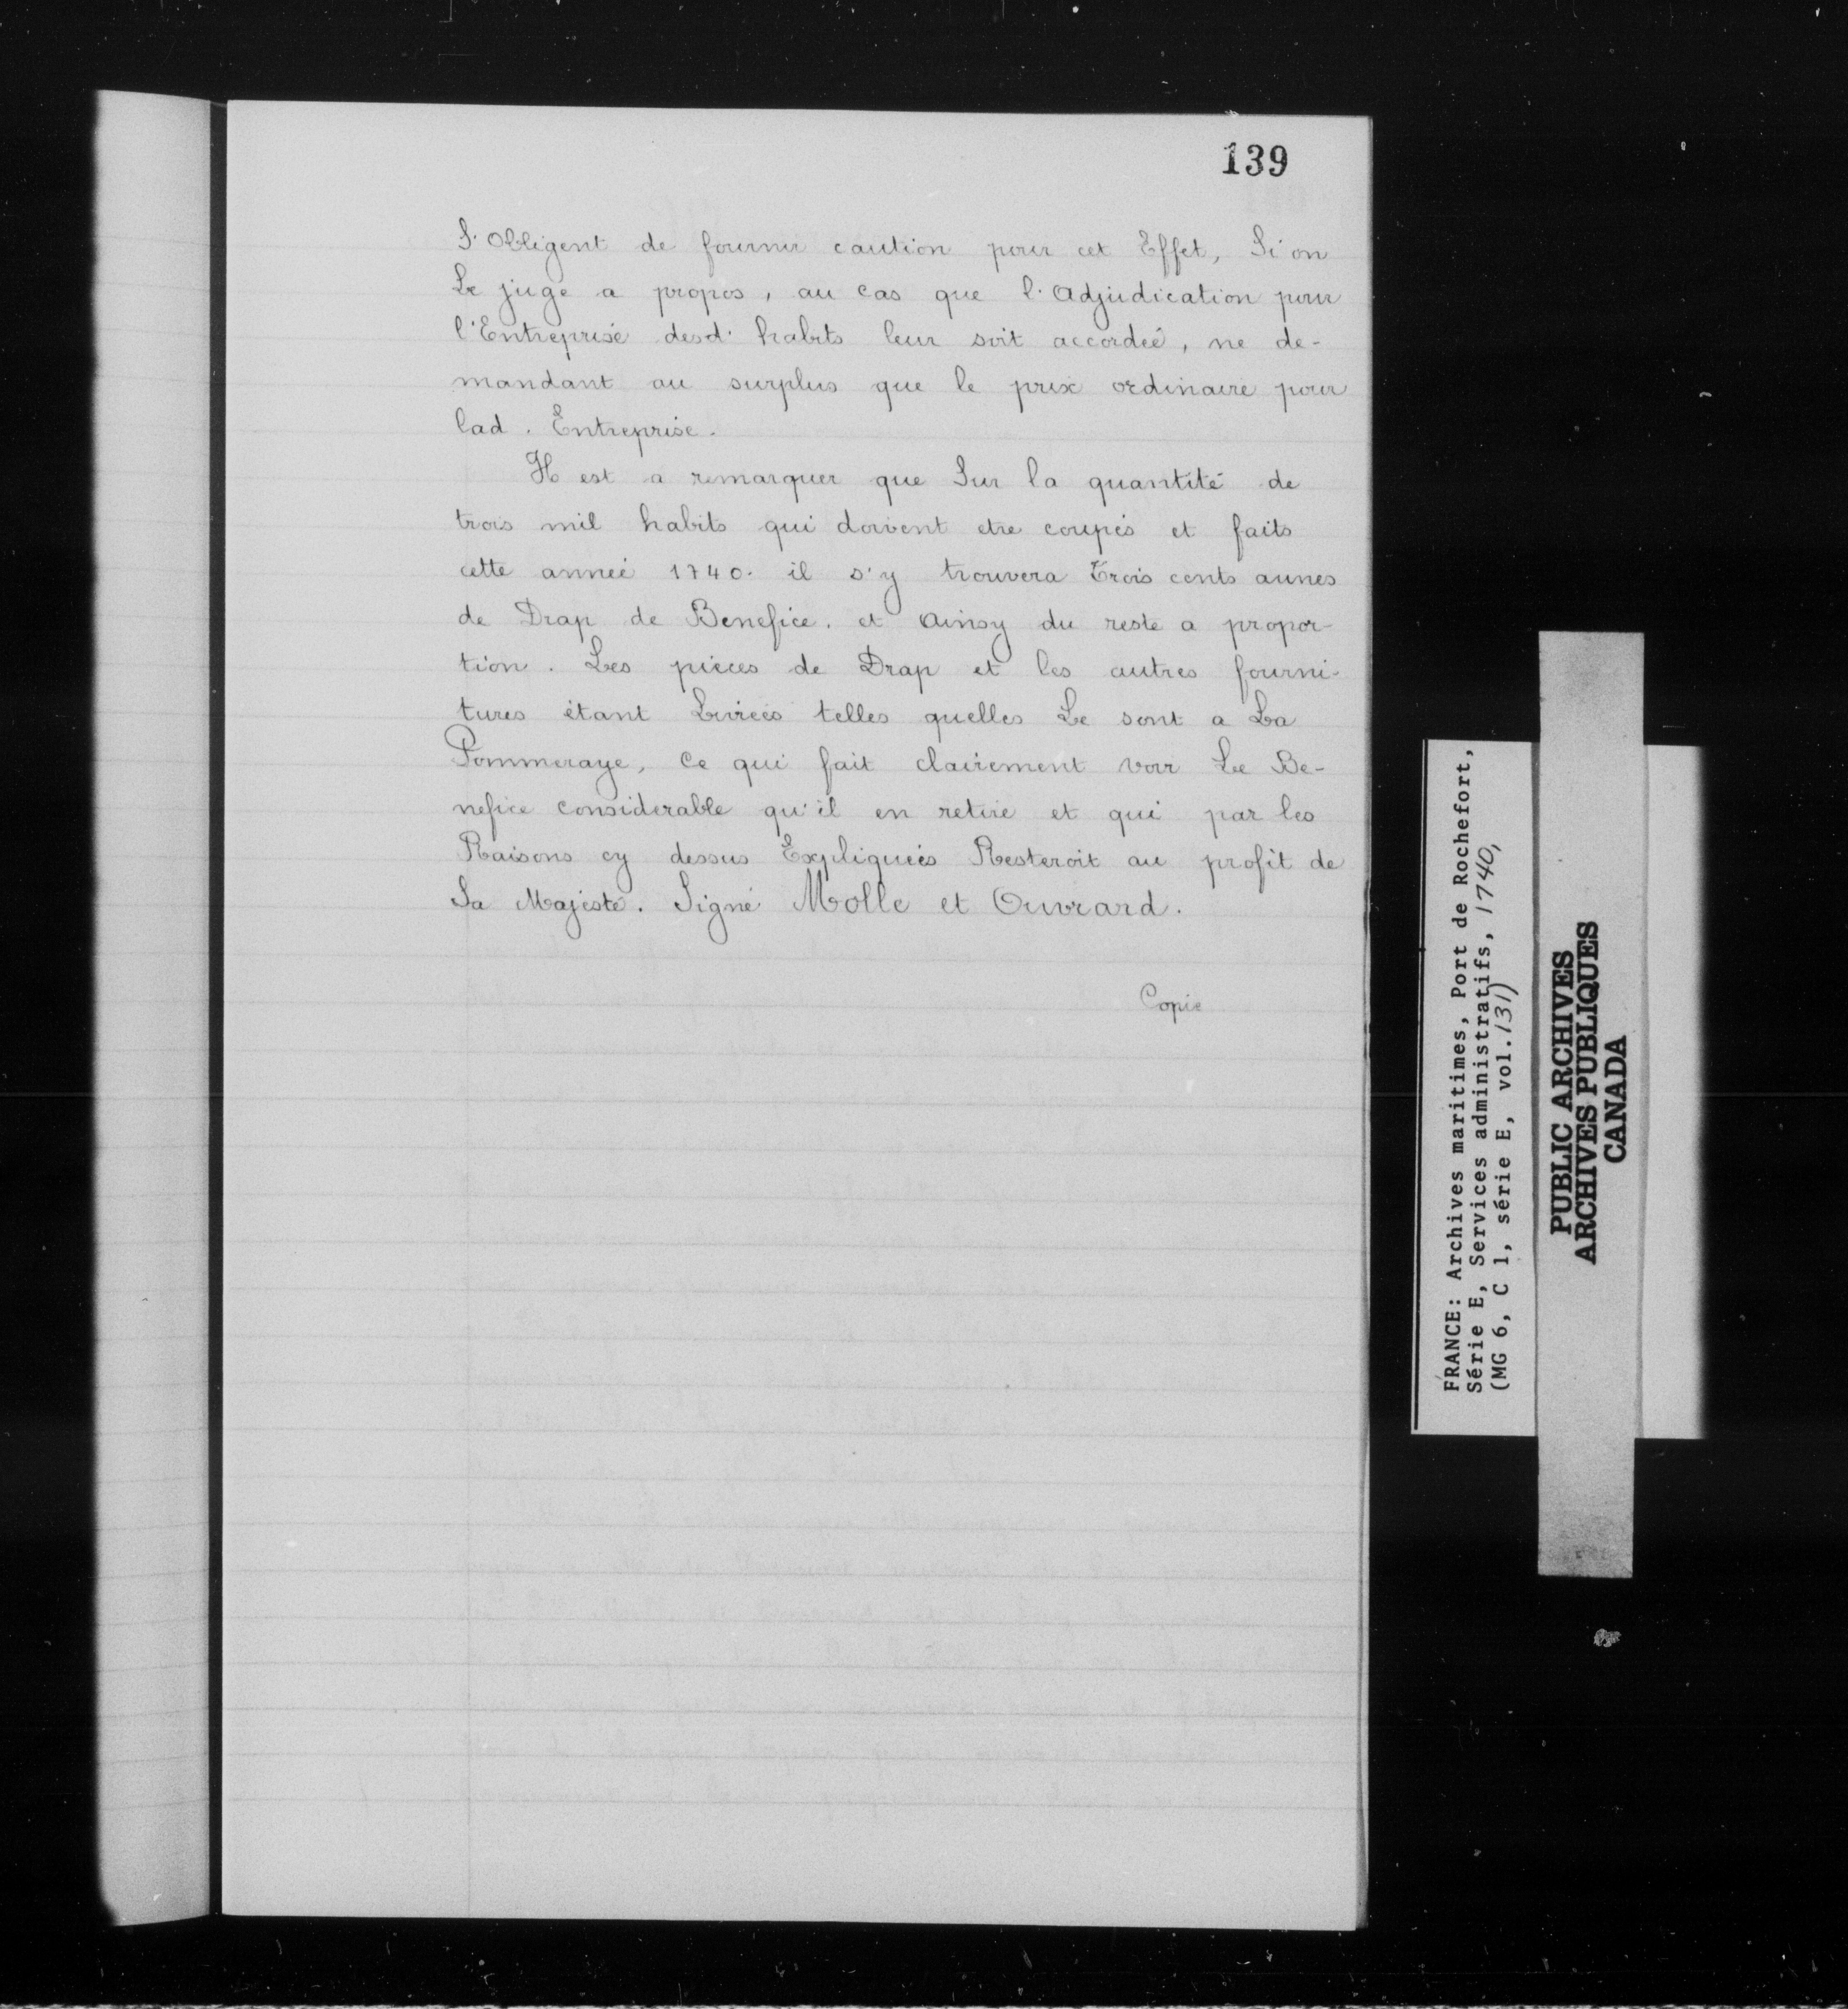 139
S'obligent de fournir caution pour cet Effet, Si on
Le juge a propos, au cas que l'Adjudication pour
l'Entreprise desd. habits leur soit accordée, ne de-
mandant au surplus que le prix ordinaire pour
lad. Entreprise.
Il est a remarquer que Sur la quantité de
trois mil habits qui doivent etre coupés et faits
cette année 1740. il s'y trouvera Trois cents aunes
de Drap de Benefice. et Ainsy du reste a propor-
tion. Les pieces de Drap et les autres fourni-
tures étant Livrées telles quelles Le sont a La
Pommeraye, Ce qui fait clairement voir Le Be-
nefice considerable qu'il en retire et qui par les
Raisons cy dessus Expliquées Resteroit au profit de
Sa Majesté. Signé Molle et Ouvrard.
Copie
FRANCE: Archives maritimes, Port de Rochefort,
Série E, Services administratifs, 1740,
(MG 6, C 1, série E, vol. 131)
PUBLIC ARCHIVES
ARCHIVES PUBLIQUES
CANADA